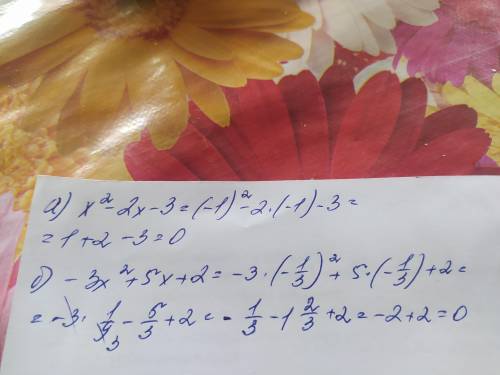 а) x² - 2x - 3 = (-1)² - 2·(-1) - 3 =
= 1 + 2 - 3 = 0
б) -3x² + 5x + 2 = -3·(-1/3)² + 5·(-1/3) + 2 =
= -3·1/9 3 - 5/3 + 2 = -1/3 - 1 2/3 + 2 = -2 + 2 = 0